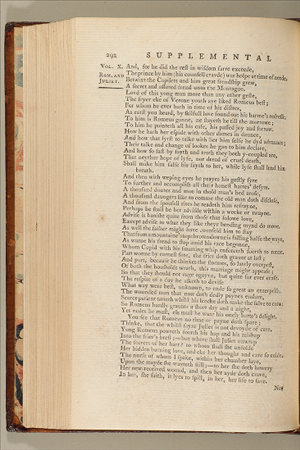 292 SUPPLEMENTAL
Vol. X. And, for he did the rest in wisdom farre exceede,
Rom. and The prince by him; his counsell cravde; was holpe at time of neede.
Juliet. Betwixt the Capilets and him great frendship grew,
A secret and assured frend unto the Montagew.
Lord of this yong man more than any other gueste,
The fryer eke of Verone youth aye liked Romeus best;
For whom he ever hath in time of his distres,
As erst you heard, by skilfull lore found out his harme's redresse.
To him is Romeus gonne, ne stayeth he till the morrowe;
To him he painteth all his case, his passed joy and sorrow.
How he hath her espide with other dames in daunce,
And how that fyrst to talke with her him selfe he dyd advaunce;
Their talke and change of lookes he gan to him declare,
And how so fast by fayth and troth they both ycoupled are,
That neyther hope of lyfe, nor dread of cruel death,
Shall make him false his fayth to her, while lyfe shall lend him
breath.
And then with weping eyes he prayes his gostly syre
To further and accomplish all their honest hartes' desyre.
A thousand doutes and moe in thold man's hed arose,
A thousand daungers like to come the old man doth disclose,
And from the spousall rites he readeth him refrayne,
Perhaps he shall be bet advisde within a weeke or twayne.
Advise is banisht quite from those that folowe love,
Except advise to what they like theyr bending mynd do move.
As well the father might have counseld him to stay
That from a mountaine's top thrown downe is falling halfe the way,
As warne his frend to stop amid his race begonne,
Whom Cupid with his smarting whip enforceth foorth to ronne.
Part wonne by earnest sute, the frier doth graunt at last;
And part, because he thinkes the stormes, so lately overpast,
Of both the housholds wrath, this marriage might apease;
So that they should not rage agayne, but quite for ever cease.
The respite of a day he asketh to devise
What way were best, unknown, to ende so great an enterprise.
The wounded man that now doth dedly paynes endure,
Scarce patient tarieth whilst his leeche doth make the salve to cure:
So Romeus hardly graunts a short day and a night,
Yet nedes he must, els must he want his onely heart's delight.
You see that Romeus no time or payne doth spare;
Thinke, that the whilst fayre Juliet is not devoyde of care.
Yong Romeus powreth foorth his hap and his mishap
Into the frier's brest;—but where shall Juliet unwrap
The secrets of her hart? to whom shall she unfolde
Her hidden burning love, and eke her thought and care so colde.
The nurse of whom I spake, within her chamber laye,
Upon the mayde she wayteth still;—to her she doth bewray
Her new-received wound, and then her ayde doth crave,
In her, she saith, it lyes to spill, in her, her life to save.
Not